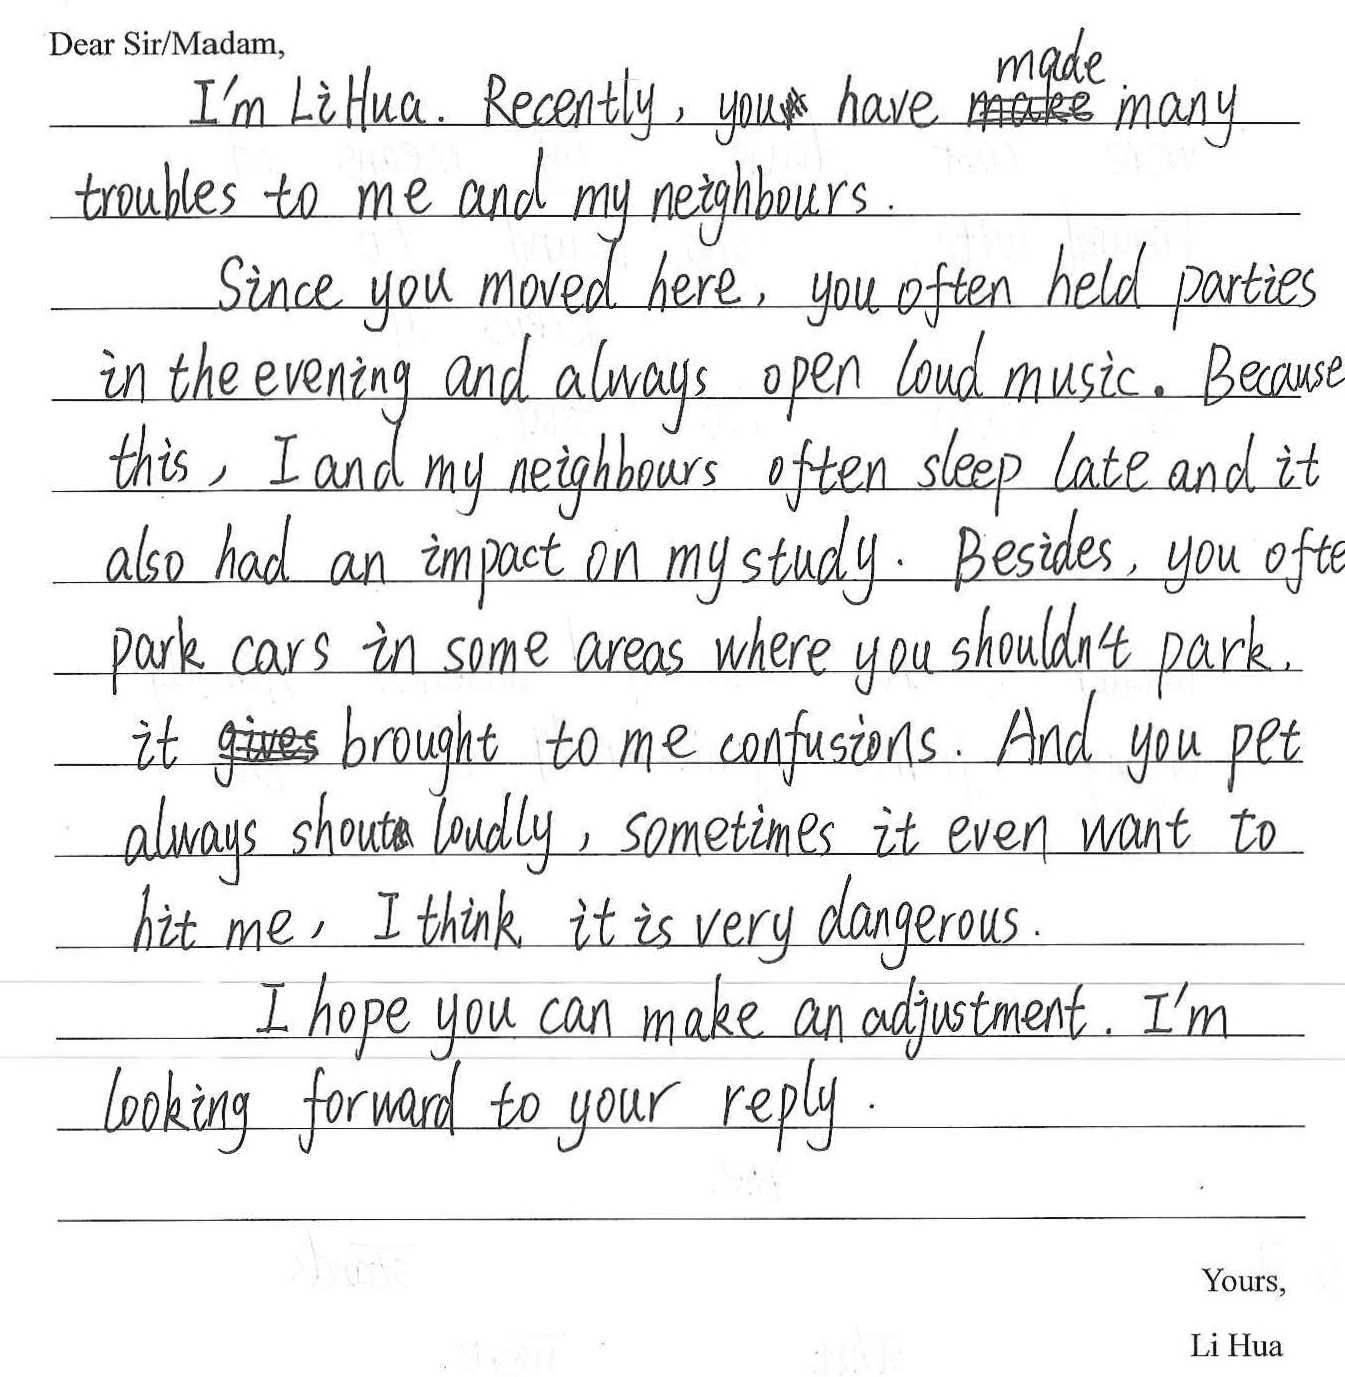 Dear Sir/Madam,
I'm Li Hua. Recently, you have made many
troubles to me and my neighbours.
Since you moved here, you often held parties
in the evening and always open loud music. Because
this, I and my neighbours often sleep late and it
also had an impact on my study. Besides, you ofte
park cars in some areas where you shouldn't park.
it brought to me confusions. And you pet
always shout loudly, sometimes it even want to
hit me, I think it is very dangerous.
I hope you can make an adjustment. I'm
looking forward to your reply.
Yours,
Li Hua